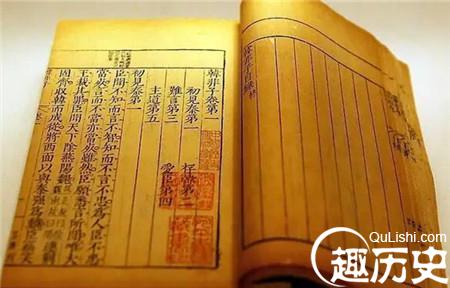 韓非子卷第一
初見秦第一 存韓第二
難言第三 愛臣第四
主道第五
初見秦第一
臣聞不知而言不知知而不言為人臣不忠
當死言而不當亦當死雖然臣願悉言所聞唯大
王裁其罪臣聞天下陰燕陽魏
固齊收韓而成從將西面以與秦強為
QuLishi.com
趣历史